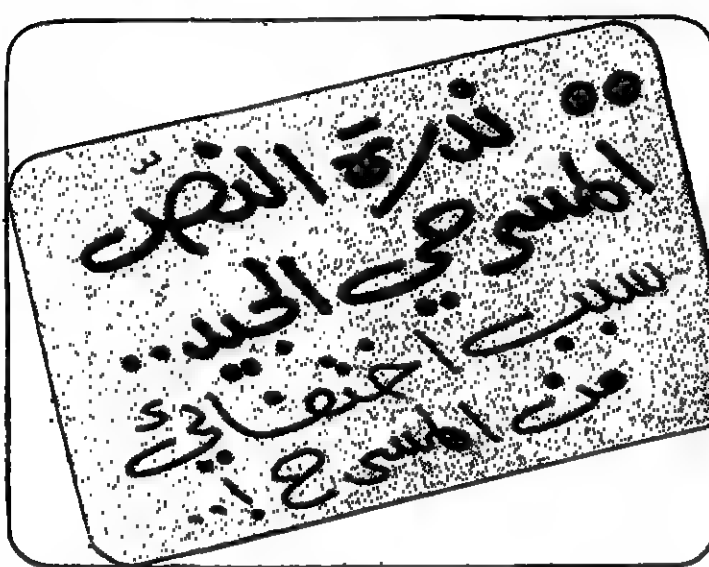 .. ندرة النصّ
المسرحي الجيد..
سبب اختفائي
من المسرح!..